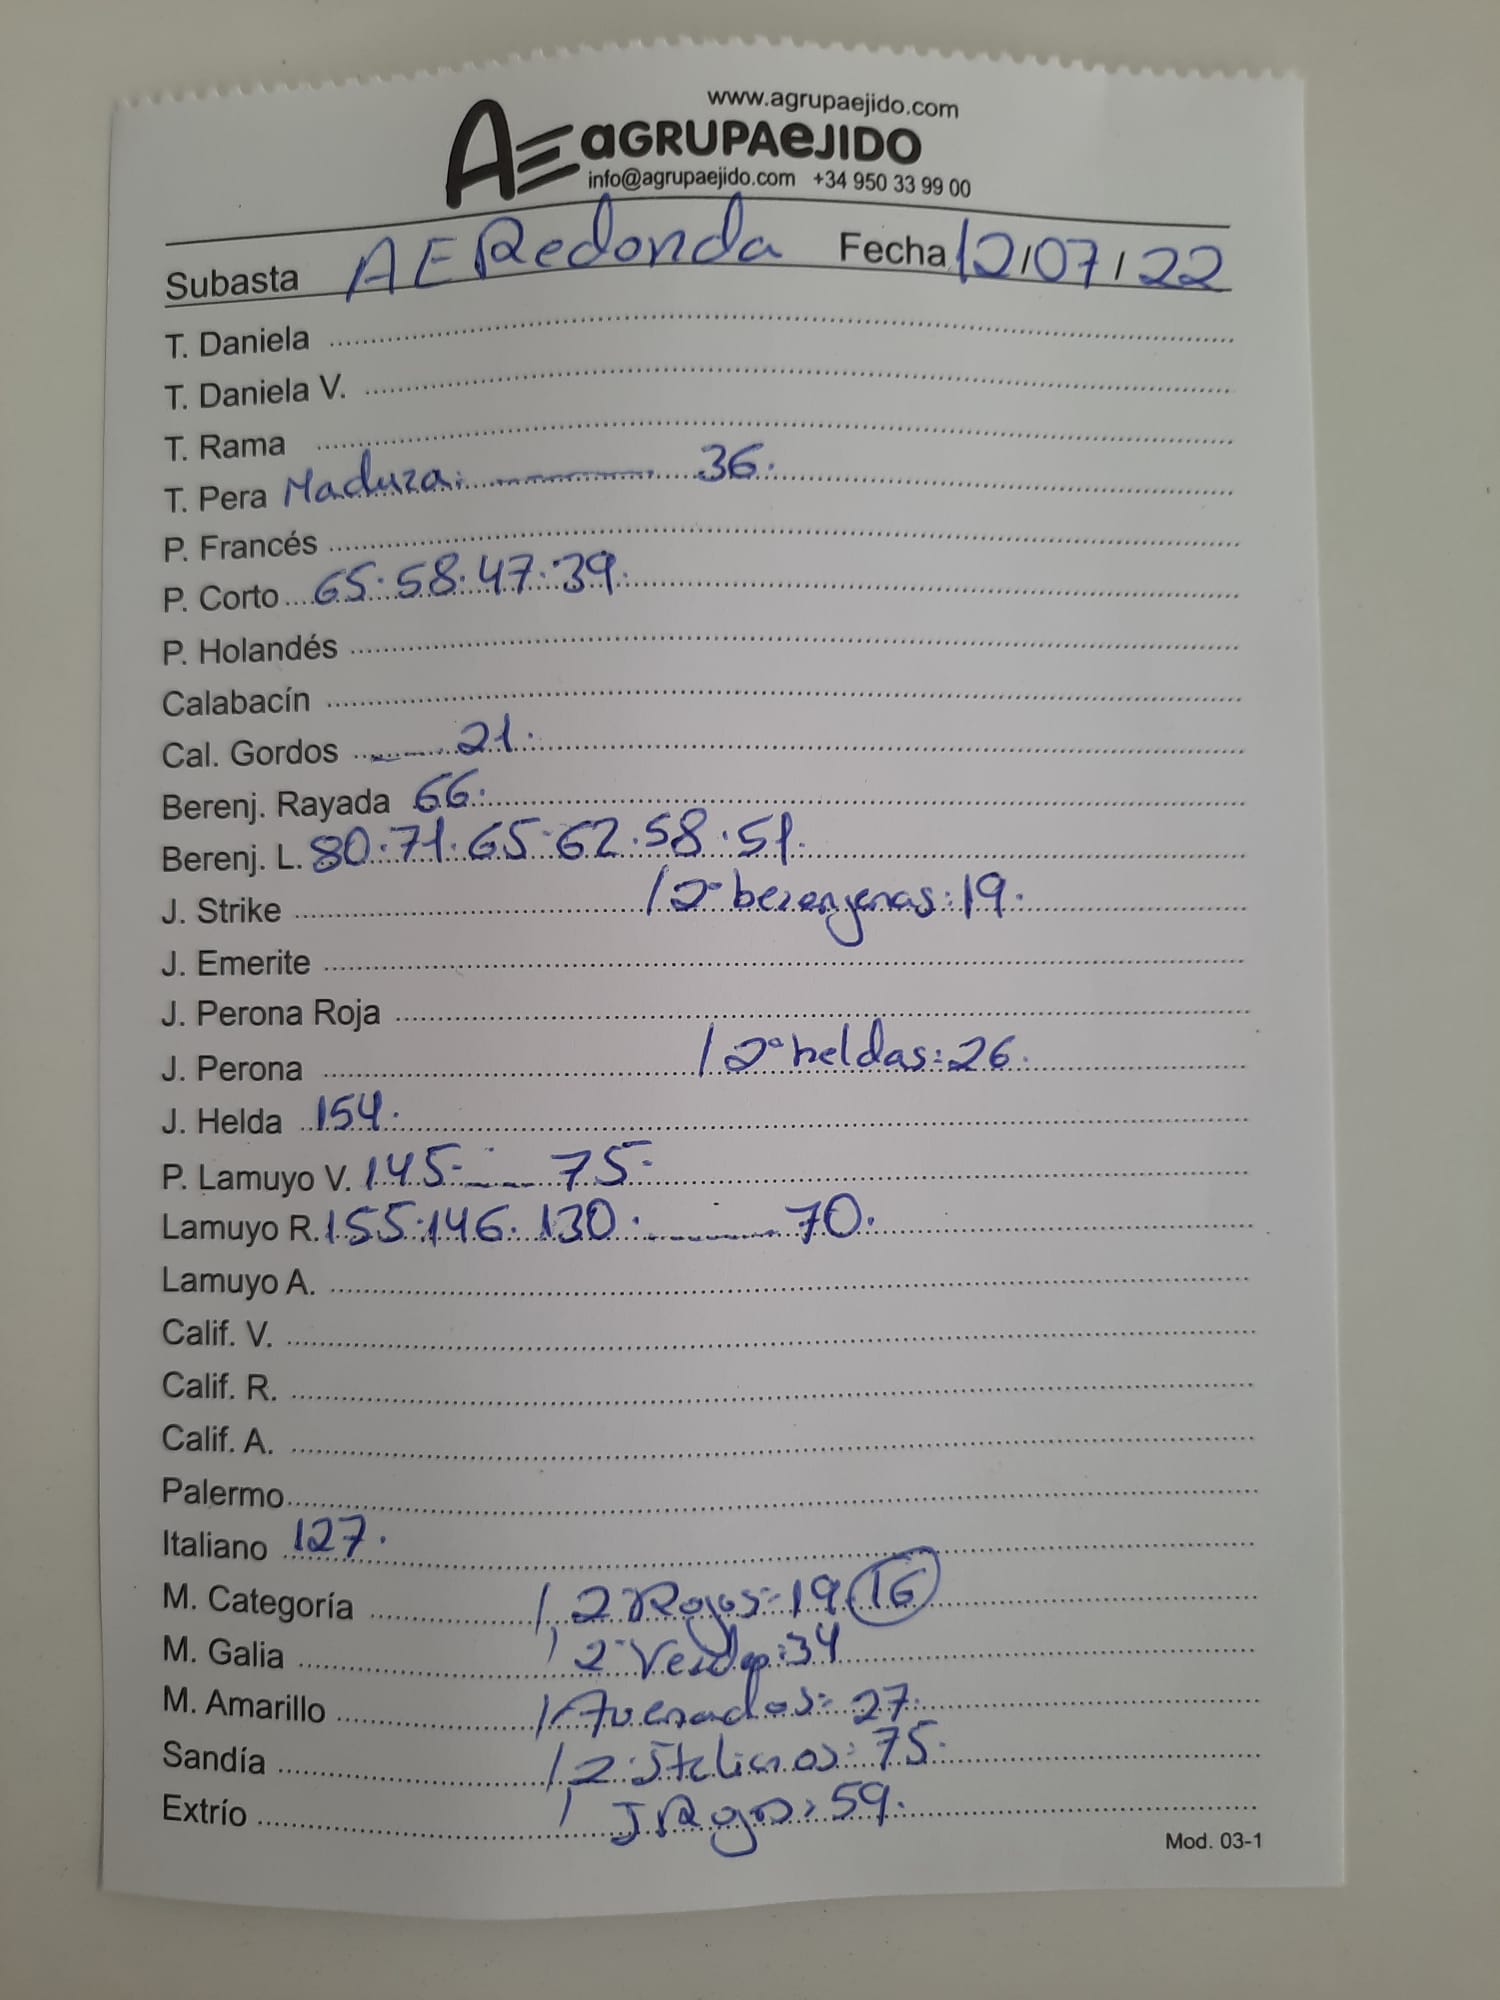 www.agrupaejido.com
AE aGRUPAeJIDO
info@agrupaejido.com +34 950 33 99 00
Subasta AE Redonda Fecha 12/07/22
T. Daniela
T. Daniela V.
T. Rama
T. Pera Madura. 36.
P. Francés
P. Corto 65.58.47.39.
P. Holandés
Calabacín
Cal. Gordos 21.
Berenj. Rayada 66.
Berenj. L. 80.71.65.62.58.51.
J. Strike / 2ª berenjenas: 19.
J. Emerite
J. Perona Roja
J. Perona / 2ª heldas: 26.
J. Helda 154.
P. Lamuyo V. 145. 75.
Lamuyo R. 155.146.130. 70.
Lamuyo A.
Calif. V.
Calif. R.
Calif. A.
Palermo
Italiano 127.
M. Categoría / 2 Rojos = 19. 16
M. Galia / 2 Verdes: 34
M. Amarillo / Avenados = 27.
Sandía / 2 Italianos = 75.
Extrío / J Rojos = 59.
Mod. 03-1